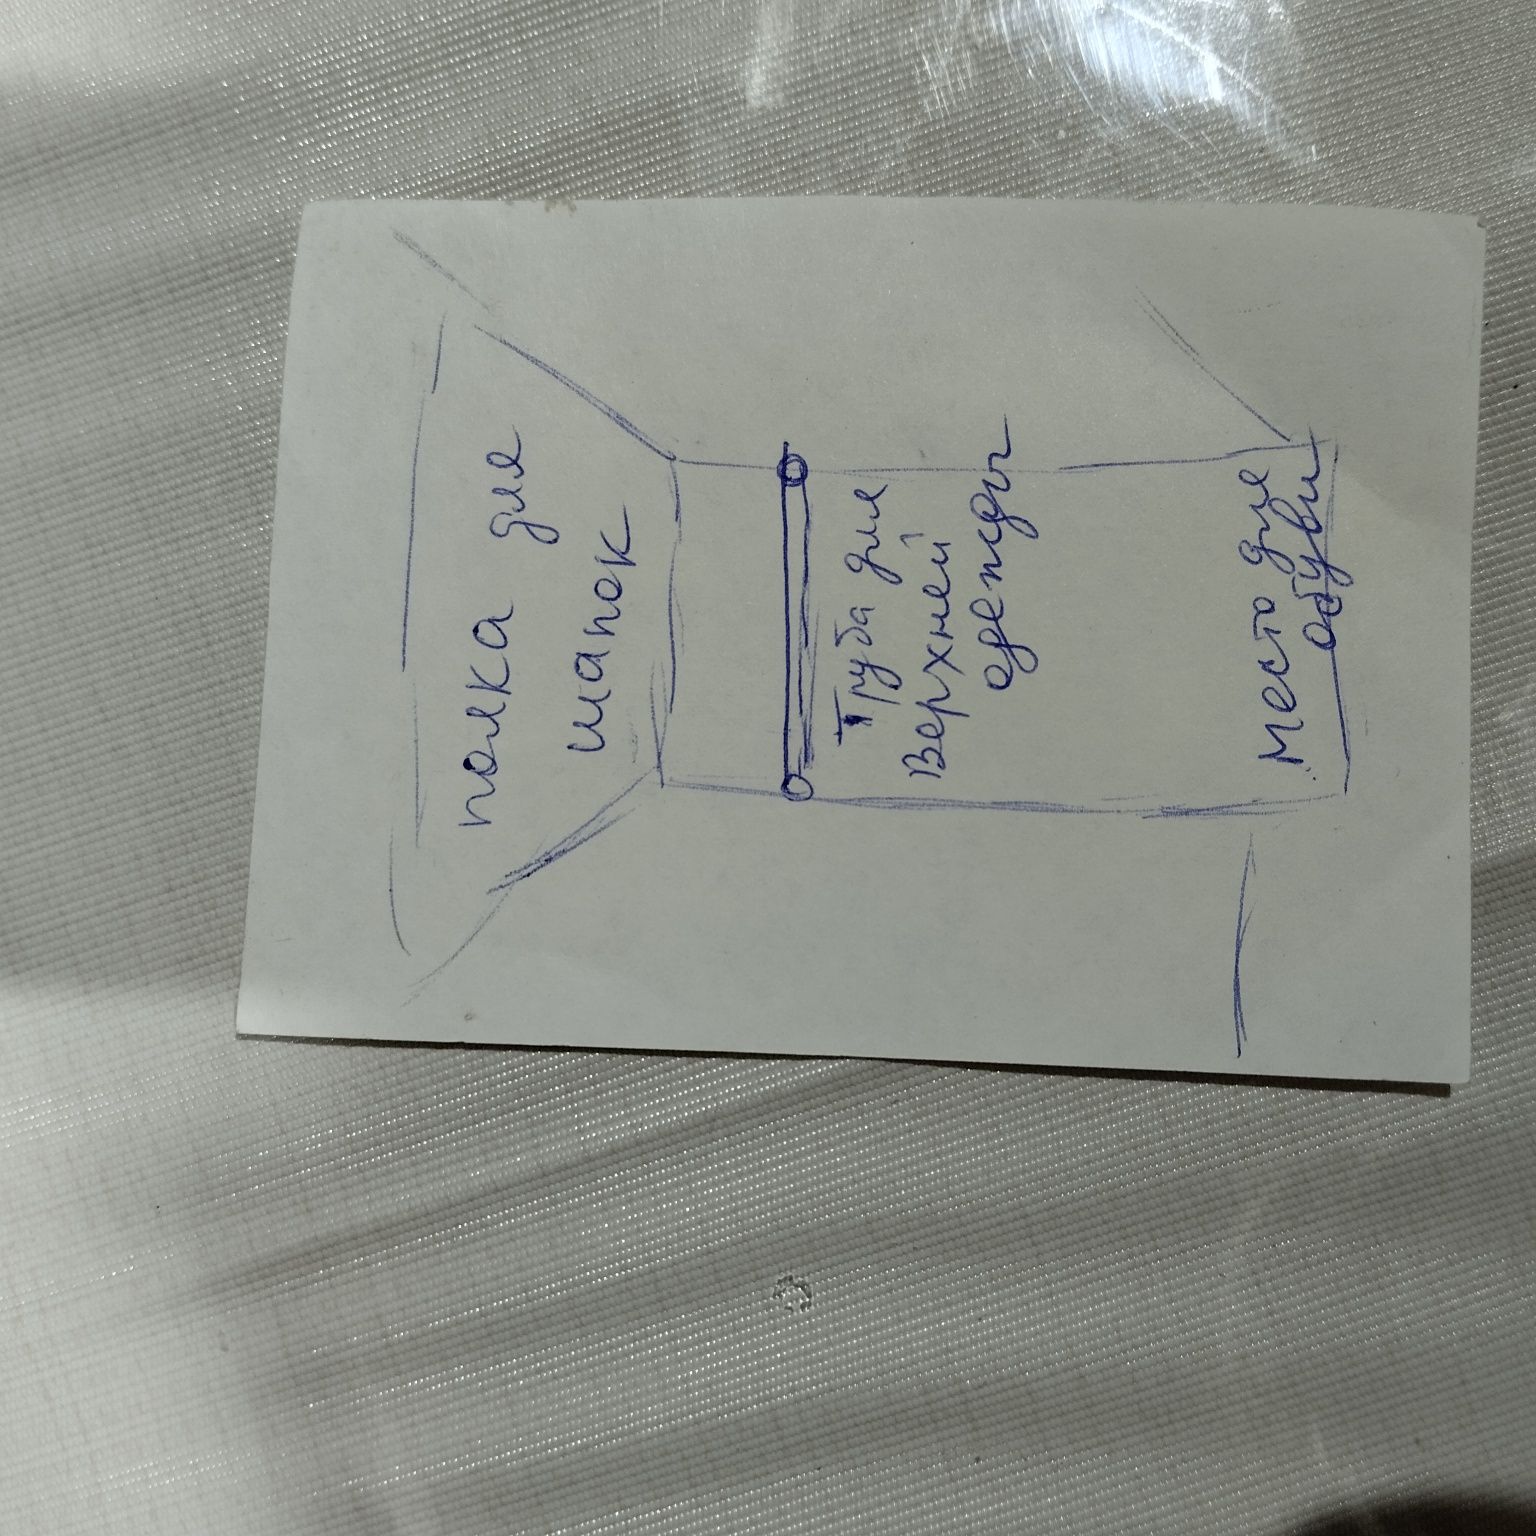 полка для
шапок
Труба для
Верхней
одежды
Место для
обуви